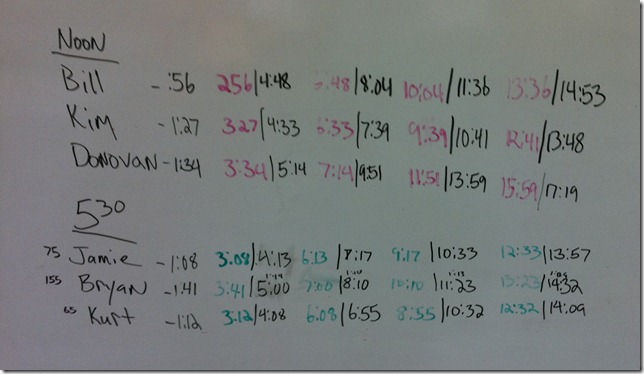 NOON
Bill - :56 256/4:48 6:48/8:04 10:04/11:36 13:36/14:53
Kim - 1:27 327/4:33 6:33/7:39 9:39/10:41 12:41/13:48
DONOVAN - 1:34 3:34/5:14 7:14/9:51 11:51/13:59 15:59/17:19
5 30
75 Jamie - 1:08 3:08/4:13 6:13/7:17 9:17/10:33 12:33/13:57
1:19 1:10 1:13 1:09
155 Bryan - 1:41 3:41/5:00 7:00/8:10 10:10/11:23 13:23/14:32
65 Kurt - 1:12 3:12/4:08 6:08/6:55 8:55/10:32 12:32/14:09